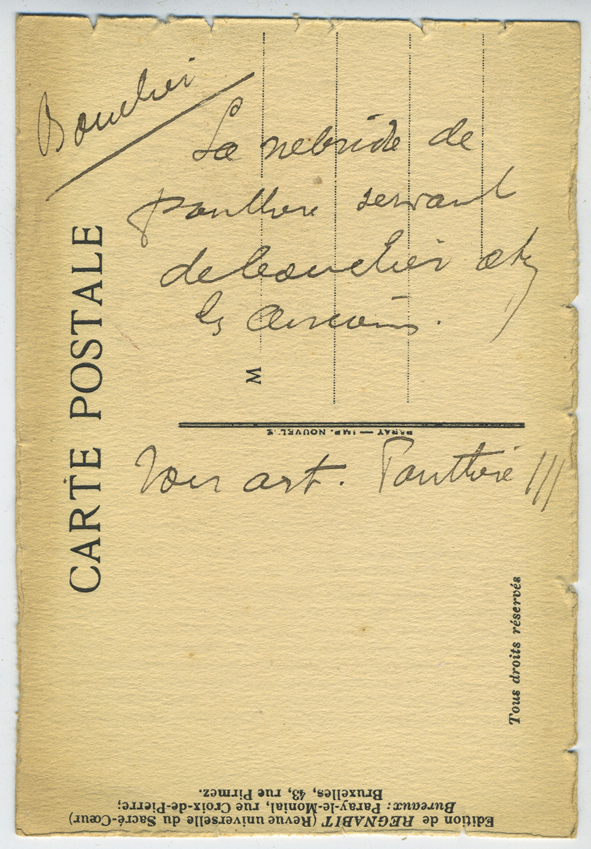 Bouclier
La nebride de
panthere servant
de bouclier chez
les Anciens.
Voir art. Panthère III
CARTE POSTALE
M
PARAY — IMP. NOUVELLE
Tous droits réservés
Edition de REGNABIT (Revue universelle du Sacré-Cœur)
Bureaux: Paray-le-Monial, rue Croix-de-Pierre;
Bruxelles, 43, rue Pirmez.